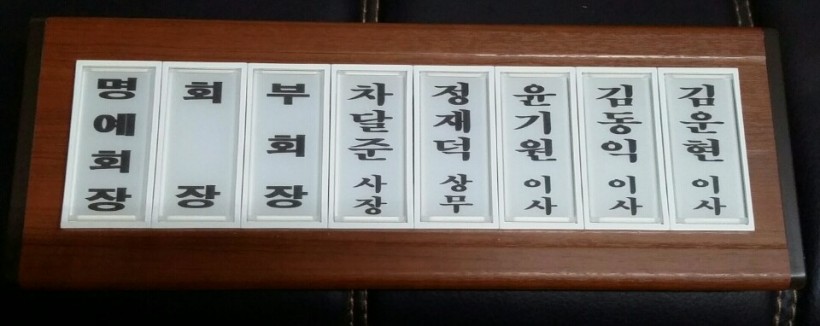 명예회장
회장
부회장
차달준 사장
정재덕 상무
윤기원 이사
김동익 이사
김운현 이사